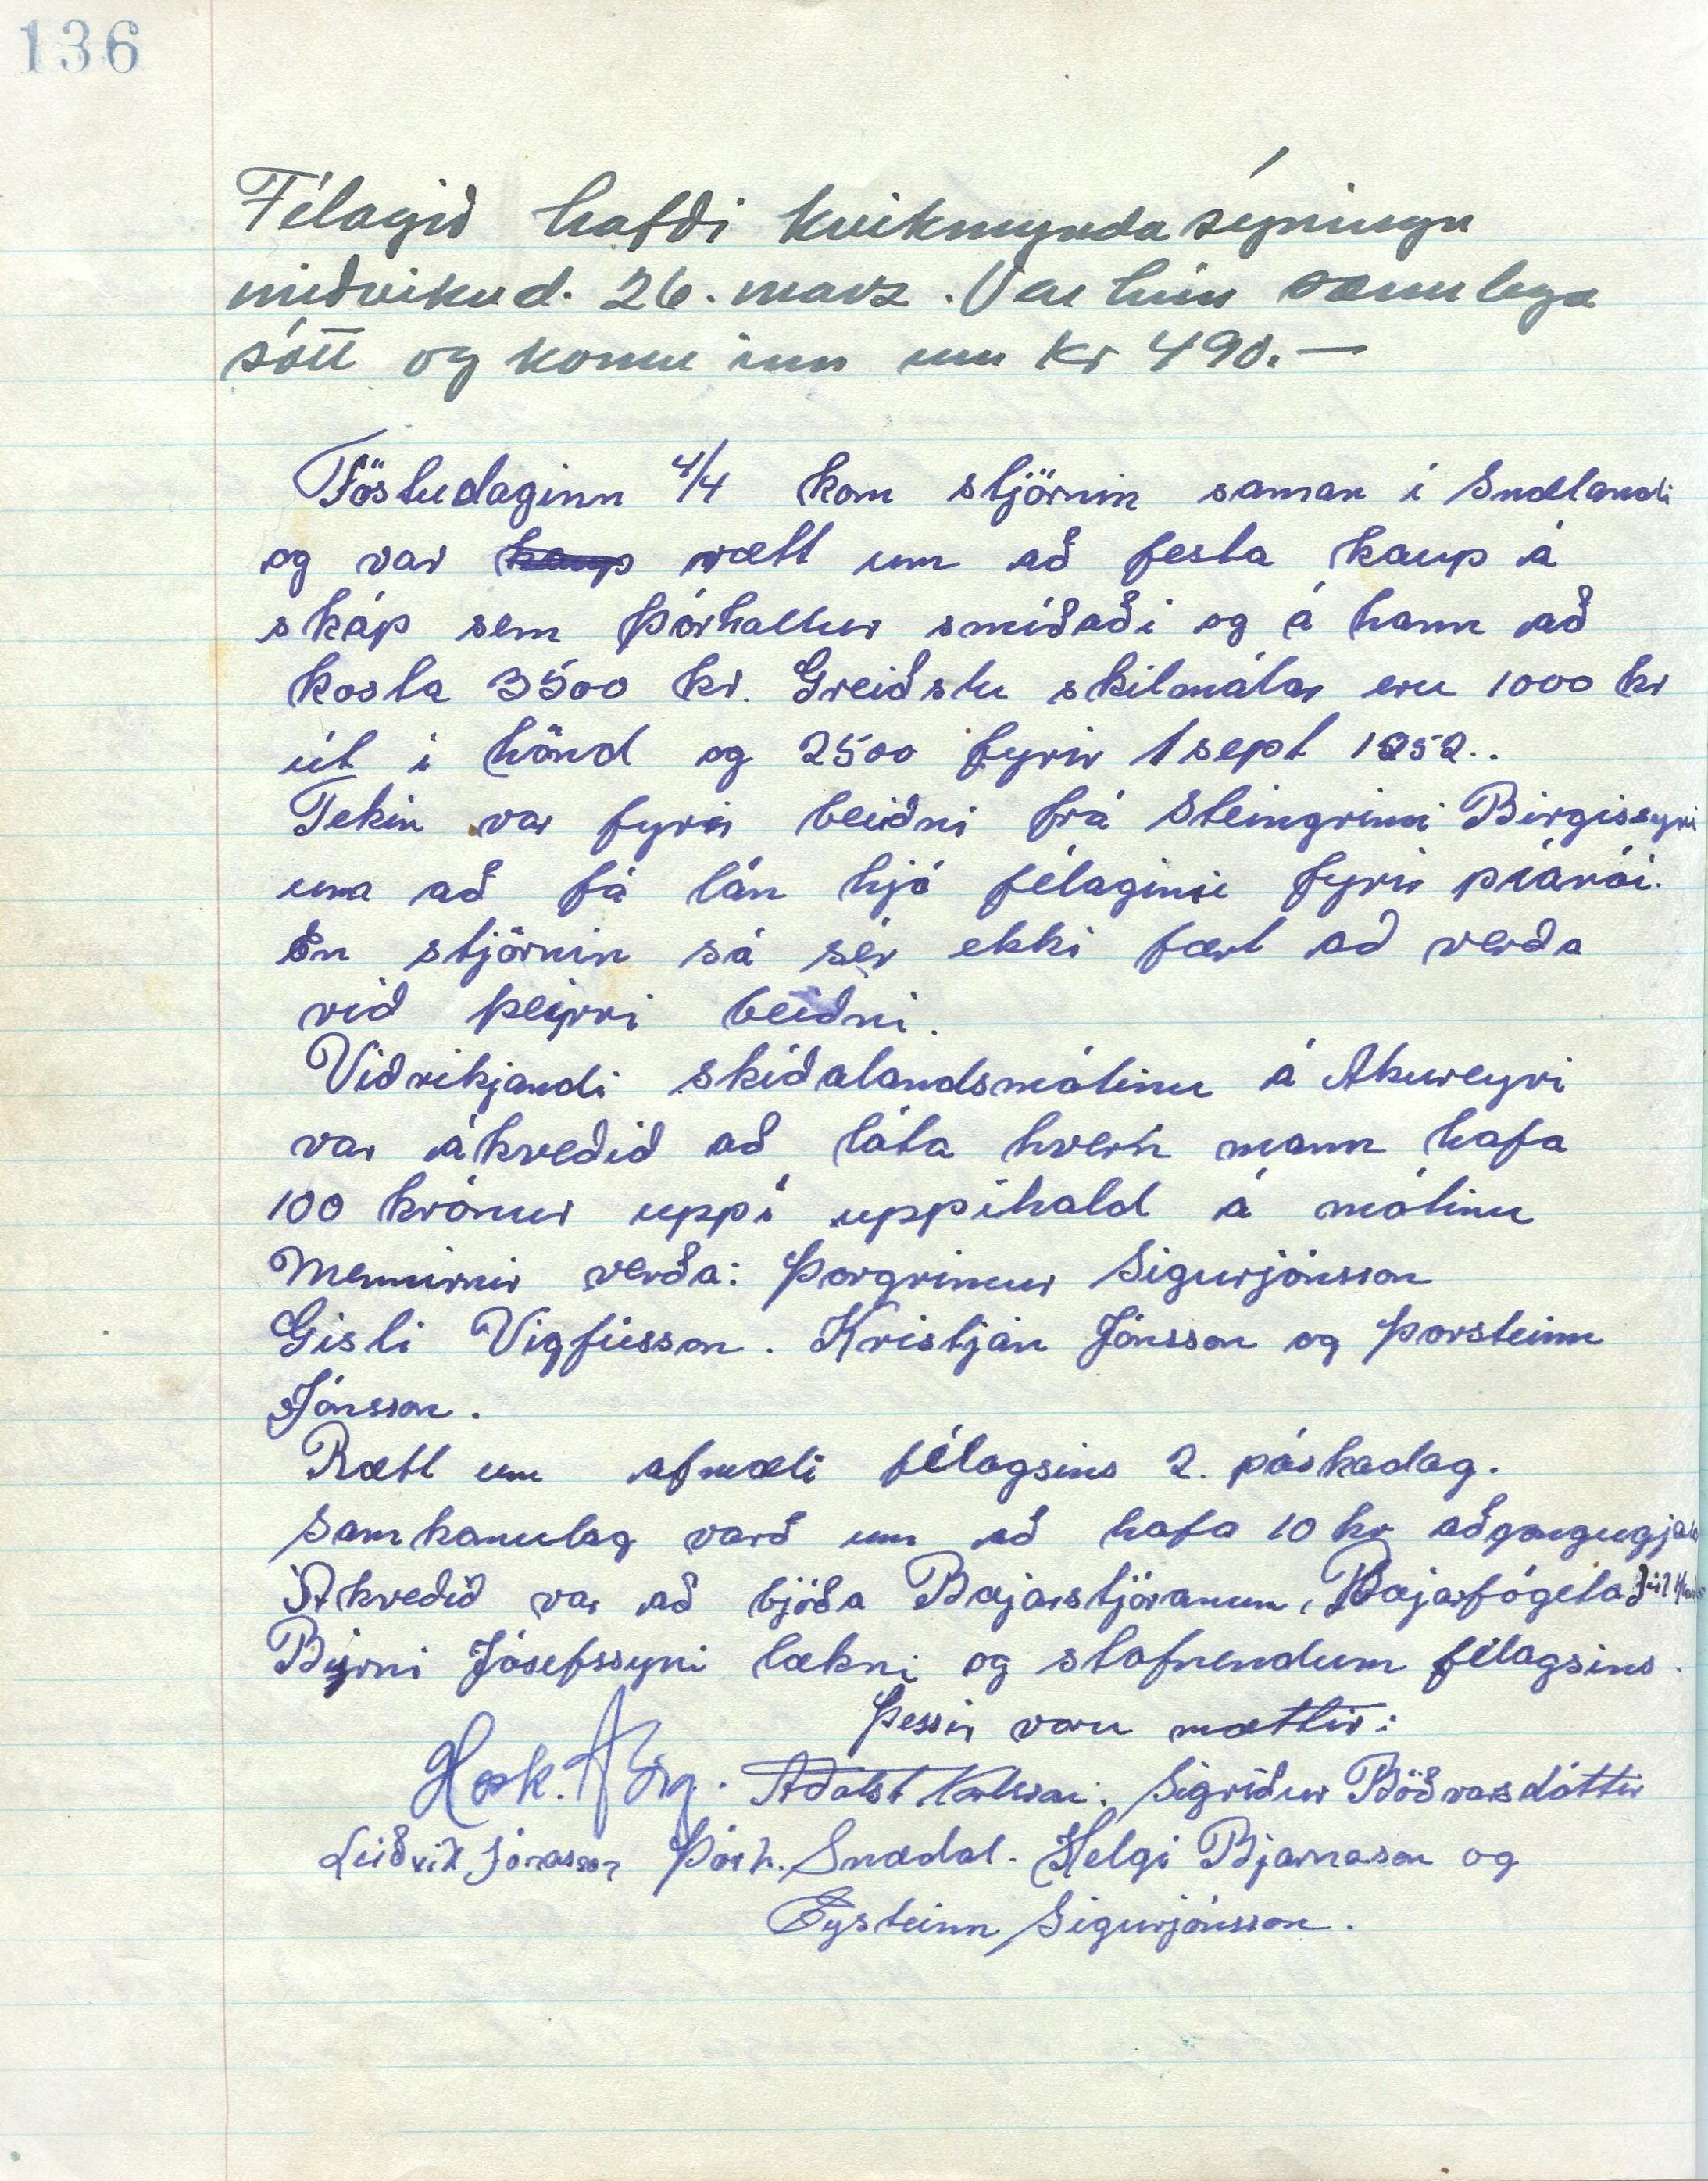 136
Félagið hafði kvikmyndasýningu
miðvikud. 26. marz. Var hún sæmilega
sótt og komu inn um kr 490.—
Föstudaginn 4/4 kom stjórnin saman í Snælandi
og var kaup rætt um að festa kaup á
skáp sem Þórhallur smíðaði og á hann að
kosta 3500 kr. Greiðslu skilmálar eru 1000 kr
út í hönd og 2500 fyrir 1 sept 1952..
Tekin var fyrir beiðni frá Steingrími Birgissyni
um að fá lán hjá félaginu fyrir píanói.
En stjórnin sá sér ekki fært að verða
við þeirri beiðni.
Viðvikjandi skíðalandsmótinu á Akureyri
var ákveðið að láta hvern mann hafa
100 krónur uppí uppihald á mótinu
Mennirnir verða: Þorgrímur Sigurjónsson
Gisli Vigfússon. Kristján Jónsson og Þorsteinn
Jónsson.
Rætt um afmæli félagsins 2. páskadag.
Samkomulag varð um að hafa 10 kr aðgangugjald
Ákveðið var að bjóða Bæjarstjóranum, Bæjarfógeta Júl
Birni Jósefssyni lækni og stofnendum félagsins.
Þessir voru mættir:
Hosk. Sig. Aðalst. Karlsson. Sigríður Böðvarsdóttir
Lúðvik Jónasson Þórh. Snædal. Helgi Bjarnason og
Eysteinn Sigurjónsson.